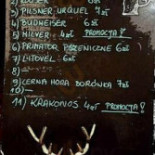 2) PILSNER URQUEL 7zł
4) BUDWEISER 6zł
5) HOLVER: 4zł PROMOCJA!
6) PRIMATOR PSZENICZNE 6zł
7) LITOVEL: 6zł
8)
9) CERNA HORA BORÓWKA 7zł
10)
11) KRAKONOS 4zł PROMOCJA!